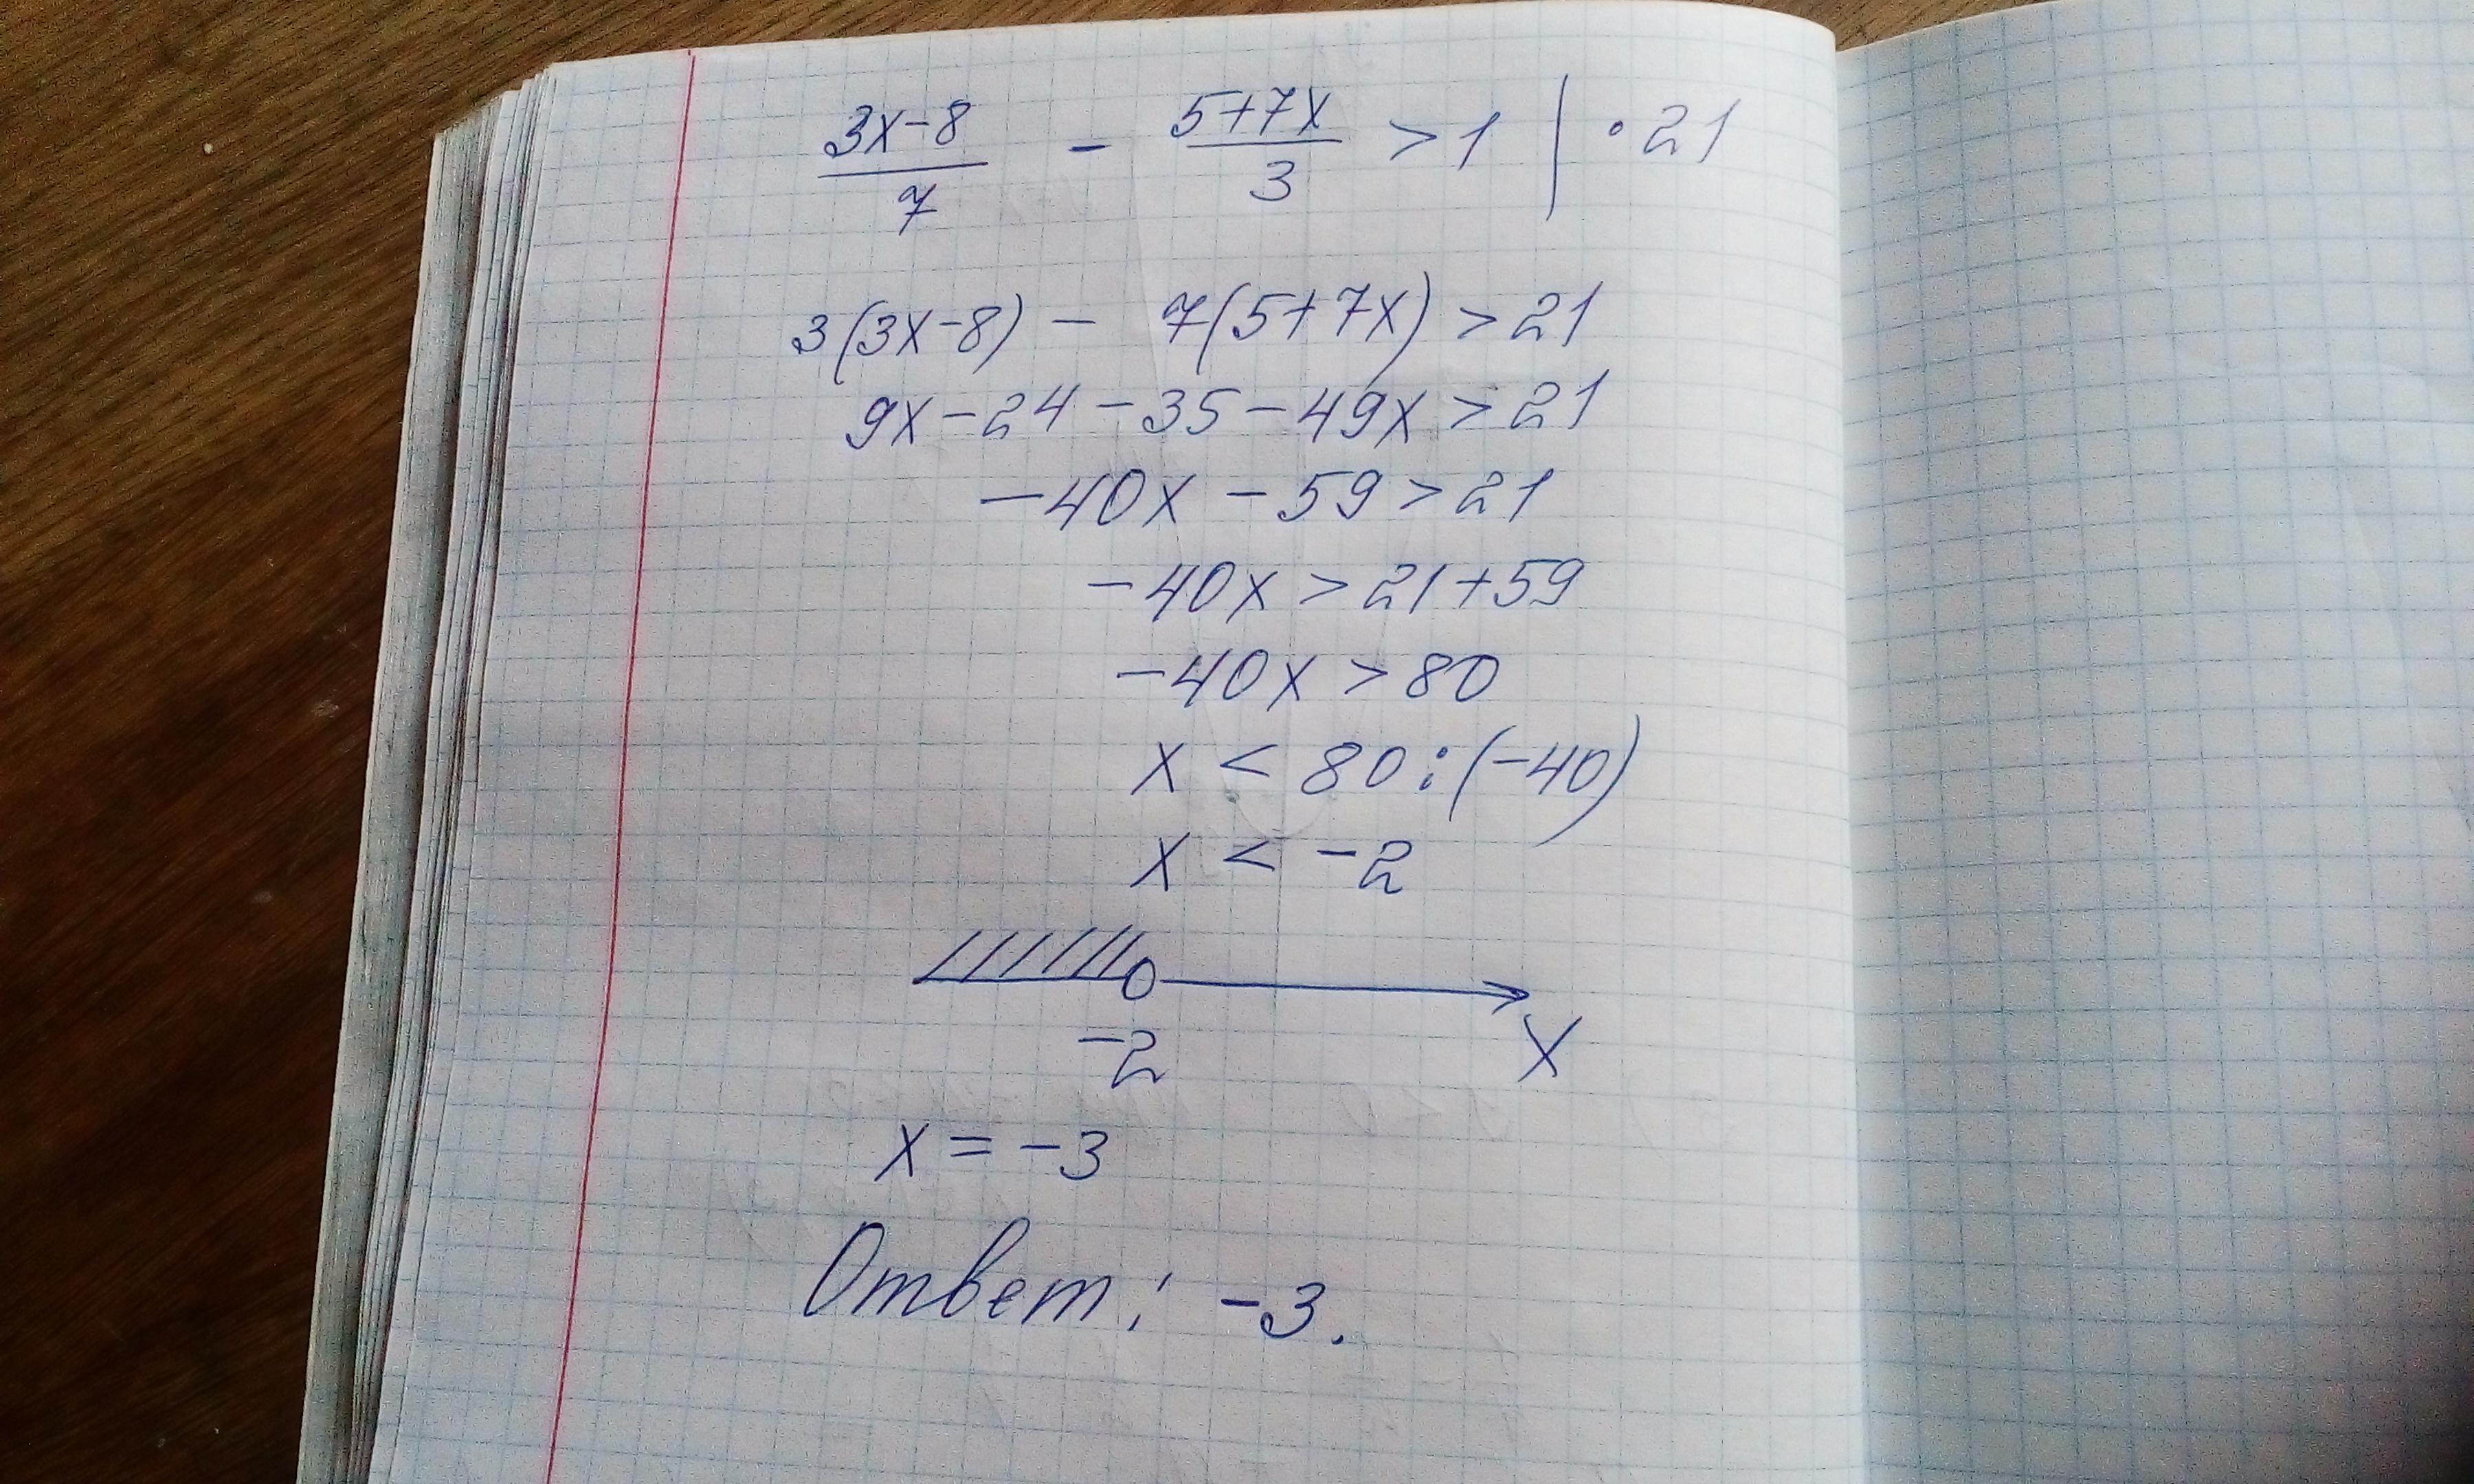 (3x-8)/7 - (5+7x)/3 > 1 | · 21
3(3x-8) - 7(5+7x) > 21
9x-24-35-49x > 21
-40x - 59 > 21
-40x > 21+59
-40x > 80
x < 80:(-40)
x < -2
-2 x
x = -3
Ответ: -3.